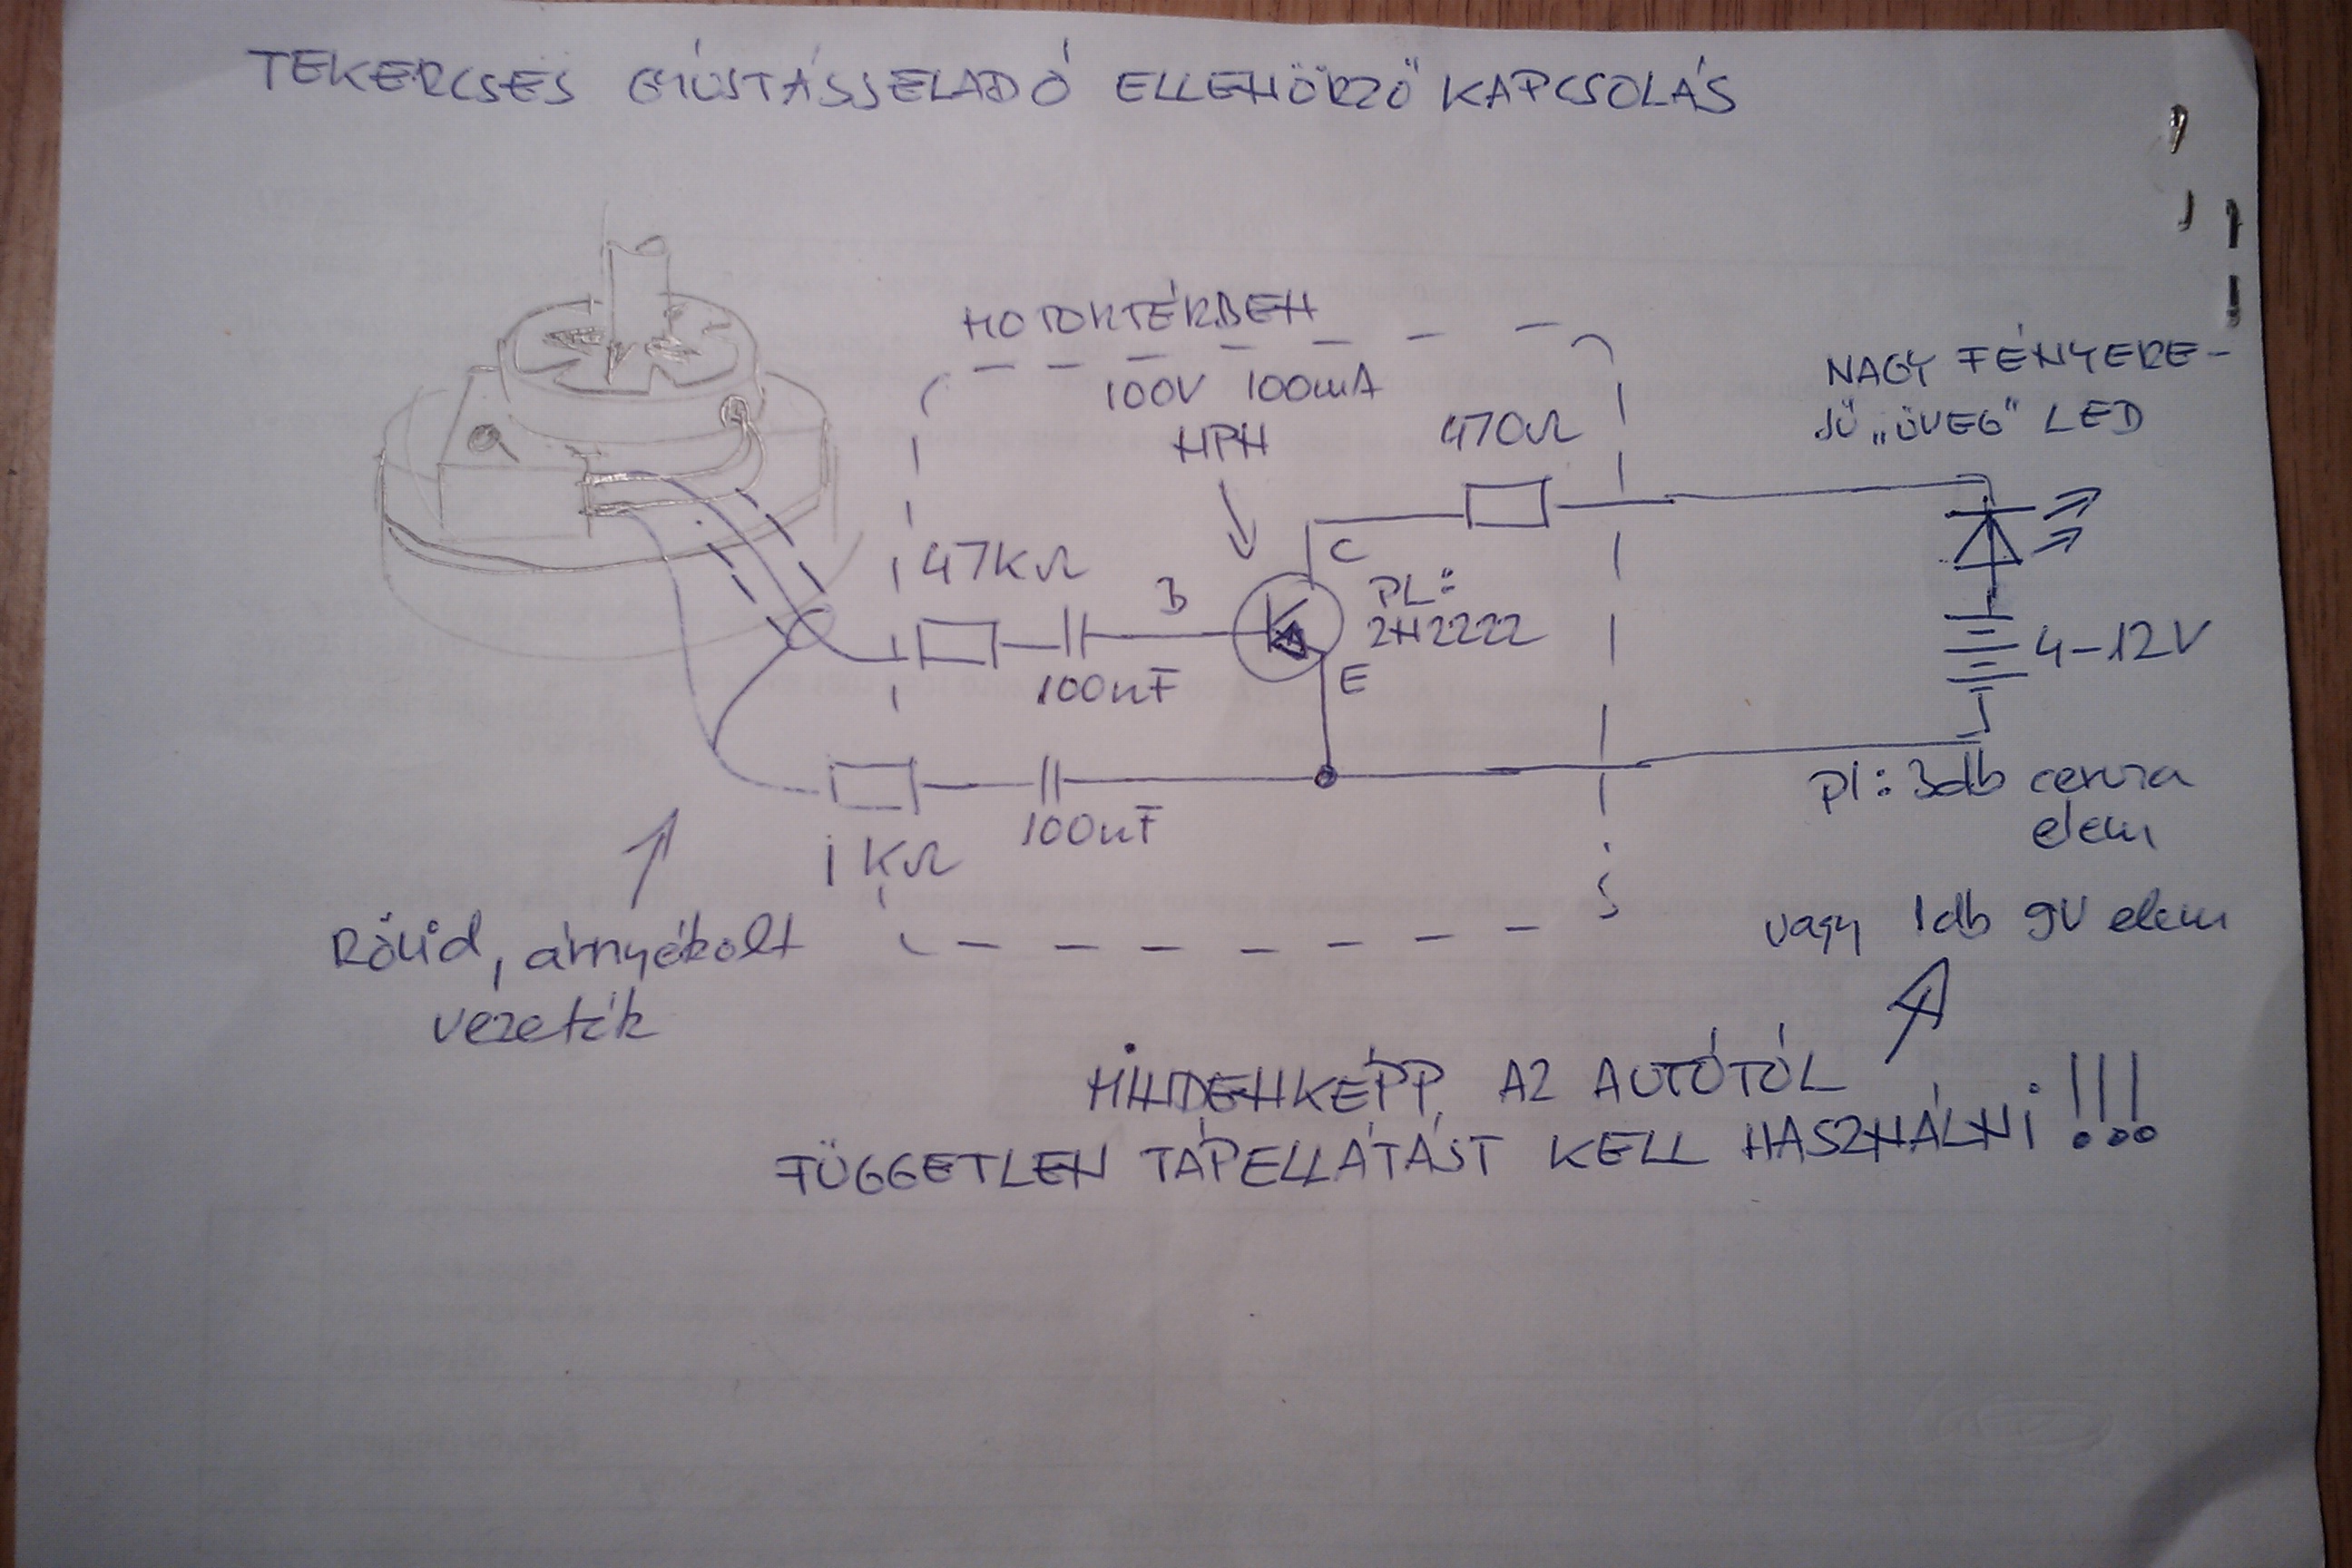 TEKERCSES GYÚJTÁSJELADÓ ELLENŐRZŐ KAPCSOLÁS
MOTORTÉRBEN
100V 100mA
NPN
470Ω
NAGY FÉNYERE-
JŰ „ÜVEG” LED
47KΩ
B
C
PL:
2N2222
E
100nF
4-12V
1KΩ
100nF
pl: 3db ceruza
elem
vagy 1db 9V elem
Rövid, árnyékolt
vezeték
MINDENKÉPP AZ AUTÓTÓL
FÜGGETLEN TÁPELLÁTÁST KELL HASZNÁLNI!!!